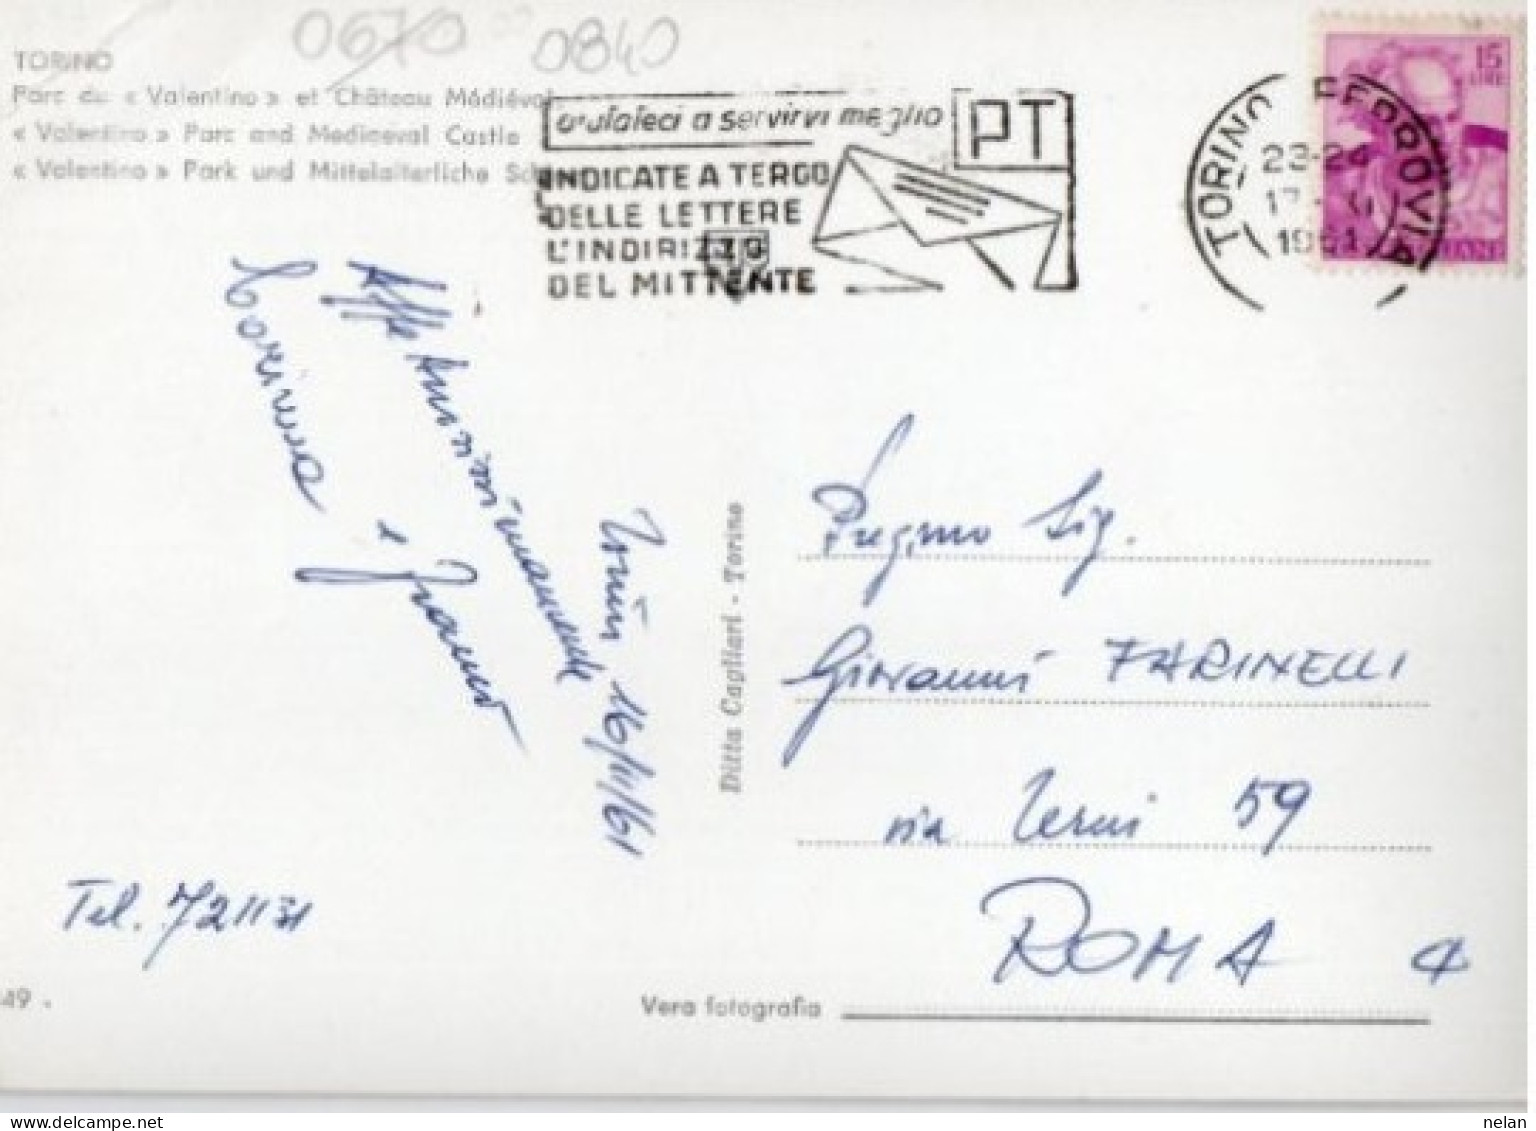 0670 0840
TORINO
Parc du « Valentino » et Château Médiéval
« Valentino » Parc and Mediaeval Castle
« Valentino » Park und Mittelalterliche
aiutateci a servirvi meglio
PT
INDICATE A TERGO
DELLE LETTERE
L'INDIRIZZO
DEL MITTENTE
TORINO FERROVIA
23-24
1961
15
LIRE
Torino 16/11/61
Corinna
e Franco
Tel. 721131
Ditta Cagliari - Torino
Preg.mo Sig.
Giovanni FARINELLI
via Terni 59
ROMA
49 .
Vera fotografia
nelan